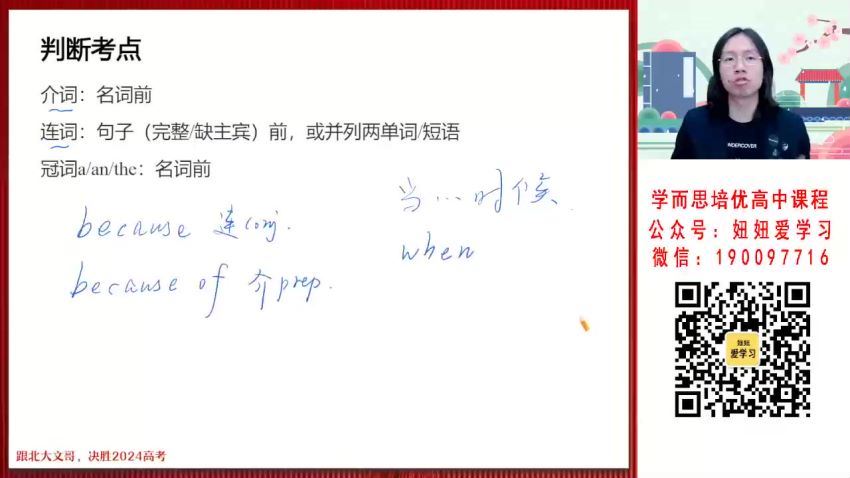 判断考点
介词：名词前
连词：句子（完整/缺主宾）前，或并列两单词/短语
冠词a/an/the：名词前
because 连conj.
because of 介prep.
当…时候
when
跟北大文哥，决胜2024高考
UNDERCOVER
学而思培优高中课程
公众号：妞妞爱学习
微信：190097716
妞妞
爱学习